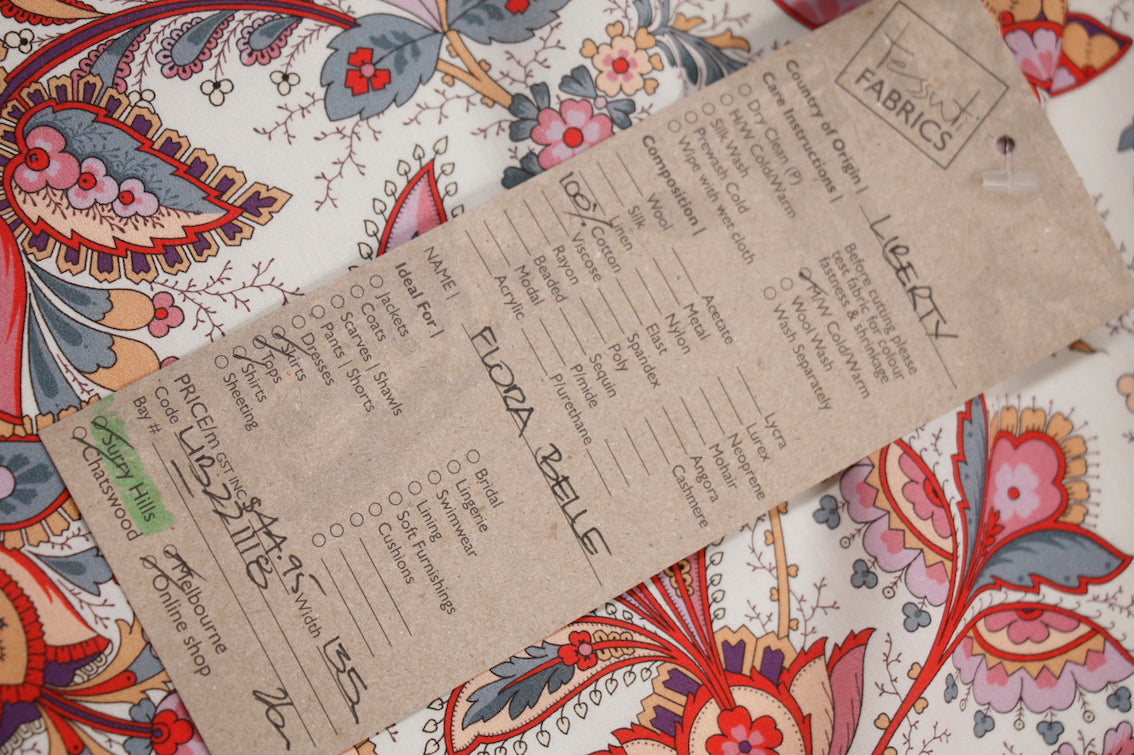 Tessuti
FABRICS
Country of Origin | LIBERTY
Care Instructions |
Before cutting please
test fabric for colour
fastness & shrinkage
Dry Clean (P)
H/W Cold/Warm
Silk Wash
Prewash Cold
Wipe with wet cloth
M/W Cold/Warm
Wool Wash
Wash Separately
Composition |
Wool
Silk
Linen
100% Cotton
Viscose
Rayon
Beaded
Modal
Acrylic
Acetate
Metal
Nylon
Elast
Spandex
Poly
Sequin
P/mide
P/urethane
Lycra
Lurex
Neoprene
Mohair
Angora
Cashmere
NAME | FLORA BELLE
Ideal For |
Jackets
Coats
Scarves | Shawls
Pants | Shorts
Dresses
Skirts
Tops
Shirts
Sheeting
Bridal
Lingerie
Swimwear
Lining
Soft Furnishings
Cushions
PRICE/m GST INC $44.95 Width 135
Code LIB22111B
Bay # 26
Surry Hills
Chatswood
Melbourne
Online shop